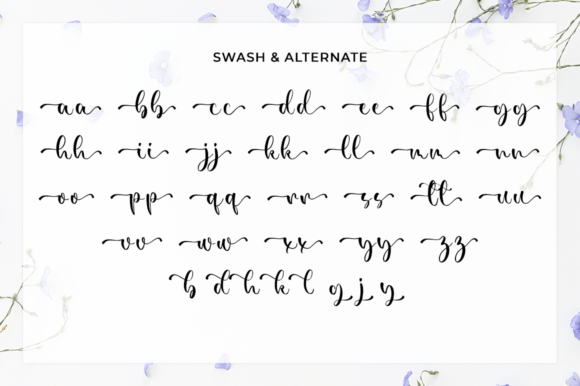 SWASH & ALTERNATE
aa bb cc dd ee ff gg
hh ii jj kk ll mm nn
oo pp qq rr ss tt uu
vv ww xx yy zz
b d h k l g j y